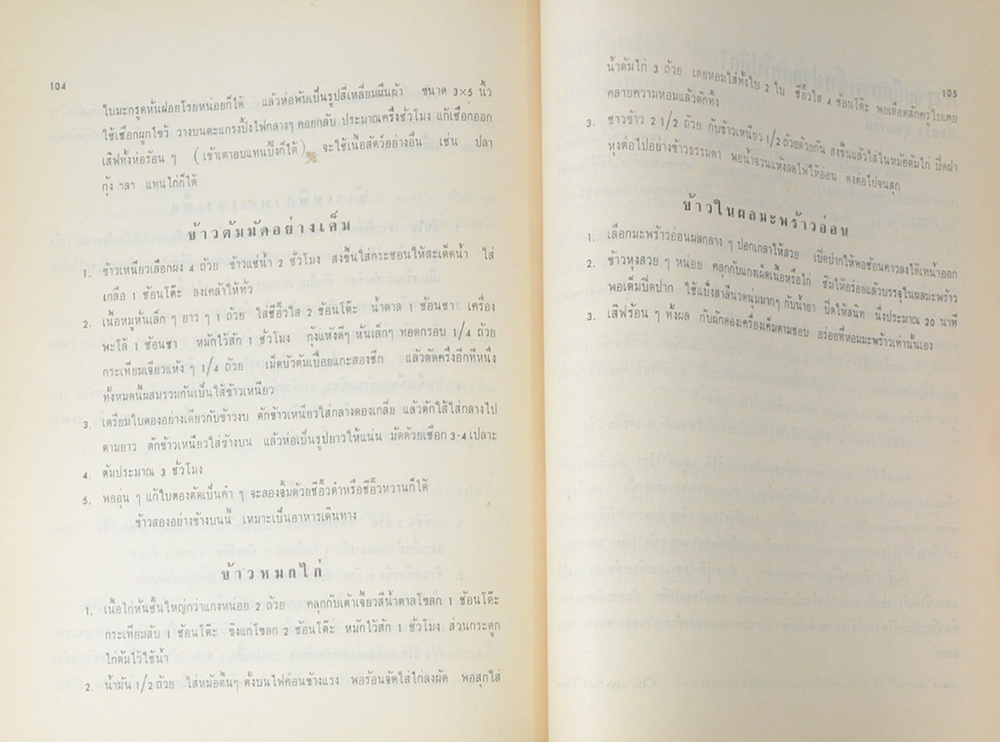 104
ใบมะกรูดหั่นฝอยโรยหน่อยก็ได้ แล้วห่อพับเป็นรูปสี่เหลี่ยมผืนผ้า ขนาด 3×5 นิ้ว
ใช้เชือกผูกไขว้ วางบนตะแกรงปิ้งไฟกลางๆ คอยกลับ ประมาณครึ่งชั่วโมง แก้เชือกออก
เสิฟทั้งห่อร้อน ๆ (เข้าเตาอบแทนปิ้งก็ได้) จะใช้เนื้อสัตว์อย่างอื่น เช่น ปลา
กุ้ง ฯลฯ แทนไก่ก็ได้
ข้าวต้มมัดอย่างเค็ม
1. ข้าวเหนียวเลือกผง 4 ถ้วย ข้าวแช่น้ำ 2 ชั่วโมง สงขึ้นใส่กระชอนให้สะเด็ดน้ำ ใส่
เกลือ 1 ช้อนโต๊ะ ลงเคล้าให้ทั่ว
2. เนื้อหมูหั่นเล็ก ๆ ยาว ๆ 1 ถ้วย ใส่ซีอิ๊วใส 2 ช้อนโต๊ะ น้ำตาล 1 ช้อนชา เครื่อง
พะโล้ 1 ช้อนชา หมักไว้สัก 1 ชั่วโมง กุ้งแห้งดีๆ หั่นเล็กๆ ทอดกรอบ 1/4 ถ้วย
กระเทียมเจียวแห้ง ๆ 1/4 ถ้วย เม็ดบัวต้มเปื่อยแกะสองซีก แล้วตัดครึ่งอีกทีหนึ่ง
ทั้งหมดนี้ผสมรวมกันเป็นไส้ข้าวเหนียว
3. เตรียมใบตองอย่างเดียวกับข้าวงบ ตักข้าวเหนียวใส่กลางตองเกลี่ย แล้วตักไส้ใส่กลางไป
ตามยาว ตักข้าวเหนียวใส่ข้างบน แล้วห่อเป็นรูปยาวให้แน่น มัดด้วยเชือก 3-4 เปลาะ
4. ต้มประมาณ 3 ชั่วโมง
5. พออุ่น ๆ แก้ใบตองตัดเป็นคำ ๆ จะลองจิ้มด้วยซีอิ๊วดำหรือซีอิ๊วหวานก็ได้
ข้าวสองอย่างข้างบนนี้ เหมาะเป็นอาหารเดินทาง
ข้าวหมกไก่
1. เนื้อไก่หั่นชิ้นใหญ่กว่าแกงหน่อย 2 ถ้วย คลุกกับเต้าเจี้ยวสีน้ำตาลโขลก 1 ช้อนโต๊ะ
กระเทียมสับ 1 ช้อนโต๊ะ ขิงแก่โขลก 2 ช้อนโต๊ะ หมักไว้สัก 1 ชั่วโมง ส่วนกระดูก
ไก่ต้มไว้ใช้น้ำ
2. น้ำมัน 1/2 ถ้วย ใส่หม้อตื้นๆ ตั้งบนไฟค่อนข้างแรง พอร้อนจัดใส่ไก่ลงผัด พอสุกใส่
105
น้ำต้มไก่ 3 ถ้วย เตยหอมใส่ทั้งใบ 2 ใบ ซีอิ๊วใส 4 ช้อนโต๊ะ พอเดือดสักครู่ใบเตย
คลายความหอมแล้วตักทิ้ง
3. ซาวข้าว 2 1/2 ถ้วย กับข้าวเหนียว 1/2 ถ้วยด้วยกัน สงขึ้นแล้วใส่ในหม้อต้มไก่ ปิดฝา
หุงต่อไปอย่างข้าวธรรมดา พอน้ำจวนแห้งลดไฟให้อ่อน ดงต่อไปจนสุก
ข้าวในผลมะพร้าวอ่อน
1. เลือกมะพร้าวอ่อนผลกลาง ๆ ปอกเกลาให้สวย เปิดปากให้พอช้อนคาวลงได้เทน้ำออก
2. ข้าวหุงสวย ๆ หน่อย คลุกกับแกงเผ็ดเนื้อหรือไก่ ชิมให้อร่อยแล้วบรรจุในผลมะพร้าว
พอเต็มปิดปาก ใช้แป้งสาลีนวดนุ่มมากๆ กับน้ำยา ปิดให้สนิท นึ่งประมาณ 20 นาที
3. เสิฟร้อน ๆ ทั้งผล กับผักดองเครื่องเค็มตามชอบ อร่อยที่หอมมะพร้าวเท่านั้นเอง